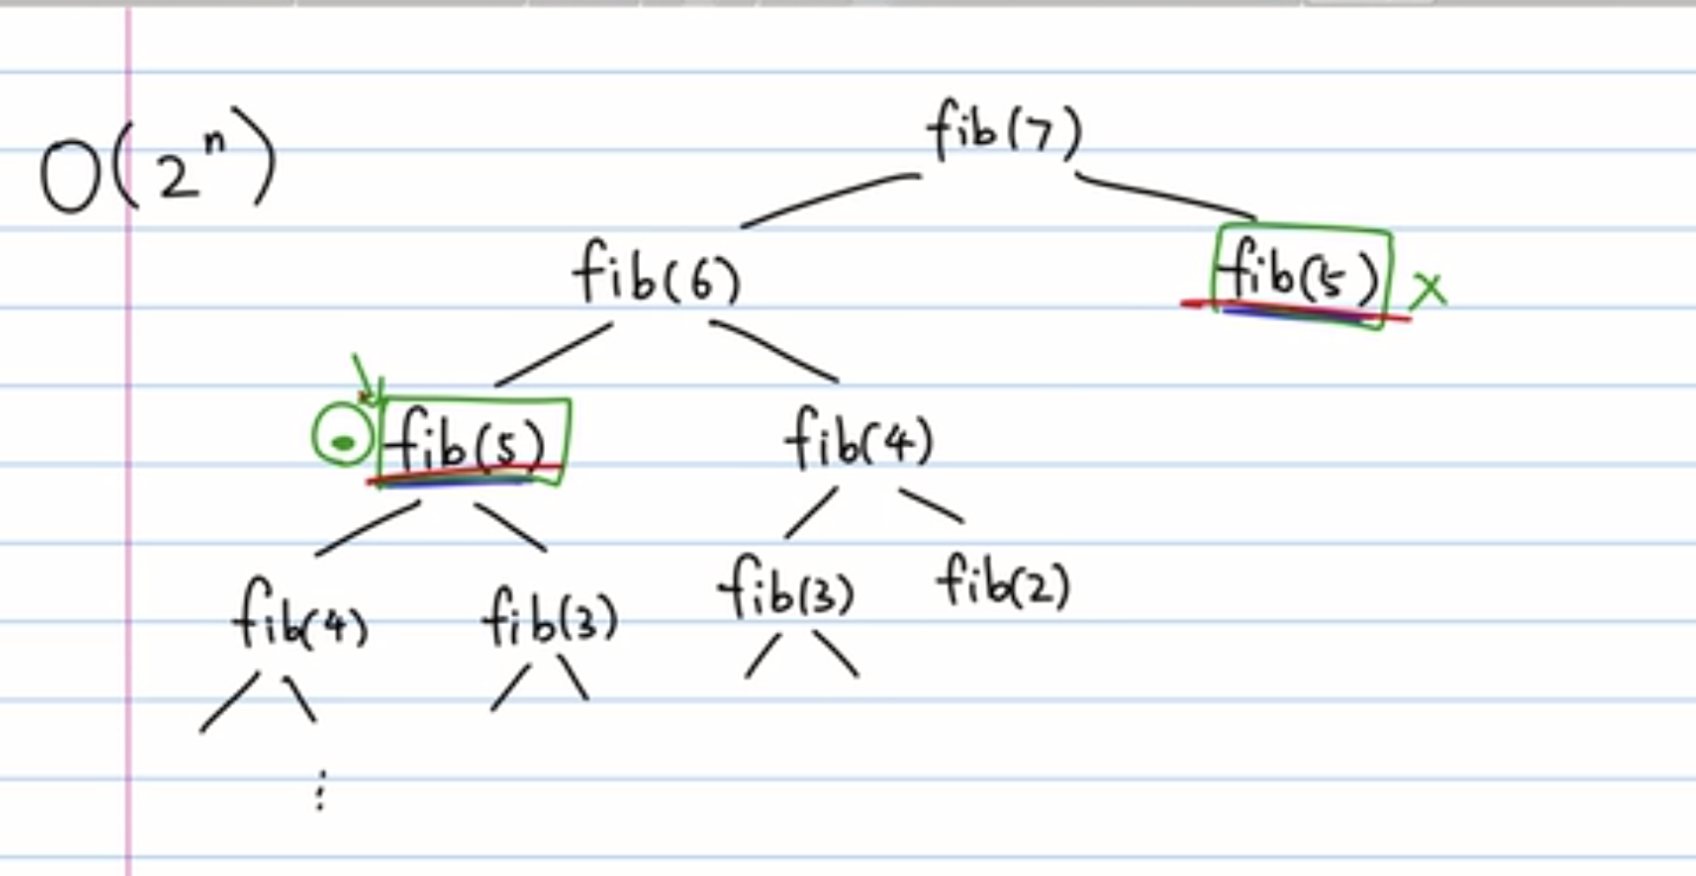 O(2ⁿ)
fib(7)
fib(6) fib(5) x
fib(5) fib(4)
fib(4) fib(3) fib(3) fib(2)